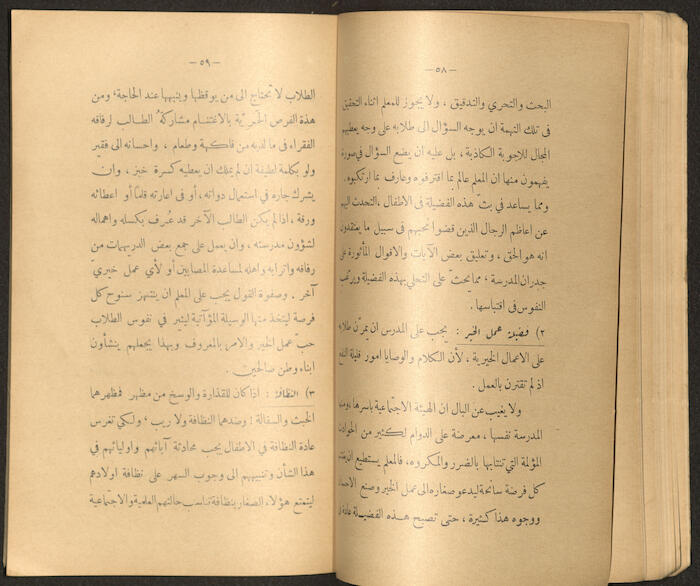 — ٥٨ —
البحث والتحري والتدقيق ، ولا يجوز للمعلم اثناء التحقيق
في تلك التهمة ان يوجه السؤال الى طلابه على وجه يعطيهم
المجال للاجوبة الكاذبة ، بل عليه ان يضع السؤال في صورة
يفهمون منها ان المعلم عالم بما اقترفوه وعارف بما ارتكبوه .
ومما يساعد في بثّ هذه الفضيلة في الاطفال ، التحدث اليهم
عن اعاظم الرجال الذين قضوا نحبهم في سبيل ما يعتقدون
انه هو الحق ، وتعليق بعض الآيات والاقوال المأثورة على
جدران المدرسة ، مما يحثّ على التحلي بهذه الفضيلة ويرغب
النفوس في اقتباسها .
٢) فضيلة عمل الخير : يجب على المدرس ان يمرّن طلابه
على الاعمال الخيرية ، لأن الكلام والوصايا امور قليلة النفع
اذ لم تقترن بالعمل .
ولا يغيب عن البال ان الهيئة الاجتماعية باسرها ،
المدرسة نفسها ، معرضة على الدوام لكثير من الحوادث
المؤلمة التي تنتابها بالضرر والمكروه ، فالمعلم يستطيع
كل فرصة سانحة ليدعو صغاره الى عمل الخير وصنع
ووجوه هذا كثيرة ، حتى تصبح هذه الفضيلة عادة
— ٥٩ —
الطلاب لا تحتاج الى من يوقظها وينبهها عند الحاجة ، ومن
هذه الفرص الحريّة بالاغتنام مشاركة الطالب لرفاقه
الفقراء في ما لديه من فاكهة وطعام ، واحسانه الى فقير
ولو بكلمة لطيفة ان لم يملك ان يعطيه كسرة خبز ، وان
يشرك جاره في استعمال دواته ، أو في اعارته قلماً أو اعطائه
ورقة ، اذا لم يكن الطالب الآخر قد عُرف بكسله واهماله
لشؤون مدرسته ، وان يعمل على جمع بعض الدريهمات من
رفاقه واترابه واهله لمساعدة المصابين أو لأي عمل خيريّ
آخر . وصفوة القول يجب على المعلم ان ينتهز سنوح كل
فرصة ليتخذ منها الوسيلة المؤآتية ليثير في نفوس الطلاب
حبّ عمل الخير والامر بالمعروف وبهذا يجعلهم ينشأون
ابناء وطن صالحين .
٣) النظافة : اذا كان للقذارة والوسخ من مظهر فمظهرهما
الخبث والسفالة : وضدهما النظافة ولا ريب ، ولكي تغرس
عادة النظافة في الاطفال يجب محادثة آبائهم واوليائهم في
هذا الشأن وتنبيههم الى وجوب السهر على نظافة اولادهم
ليتمتع هؤلاء الصغار بنظافة تناسب حالتهم العلمية والاجتماعية